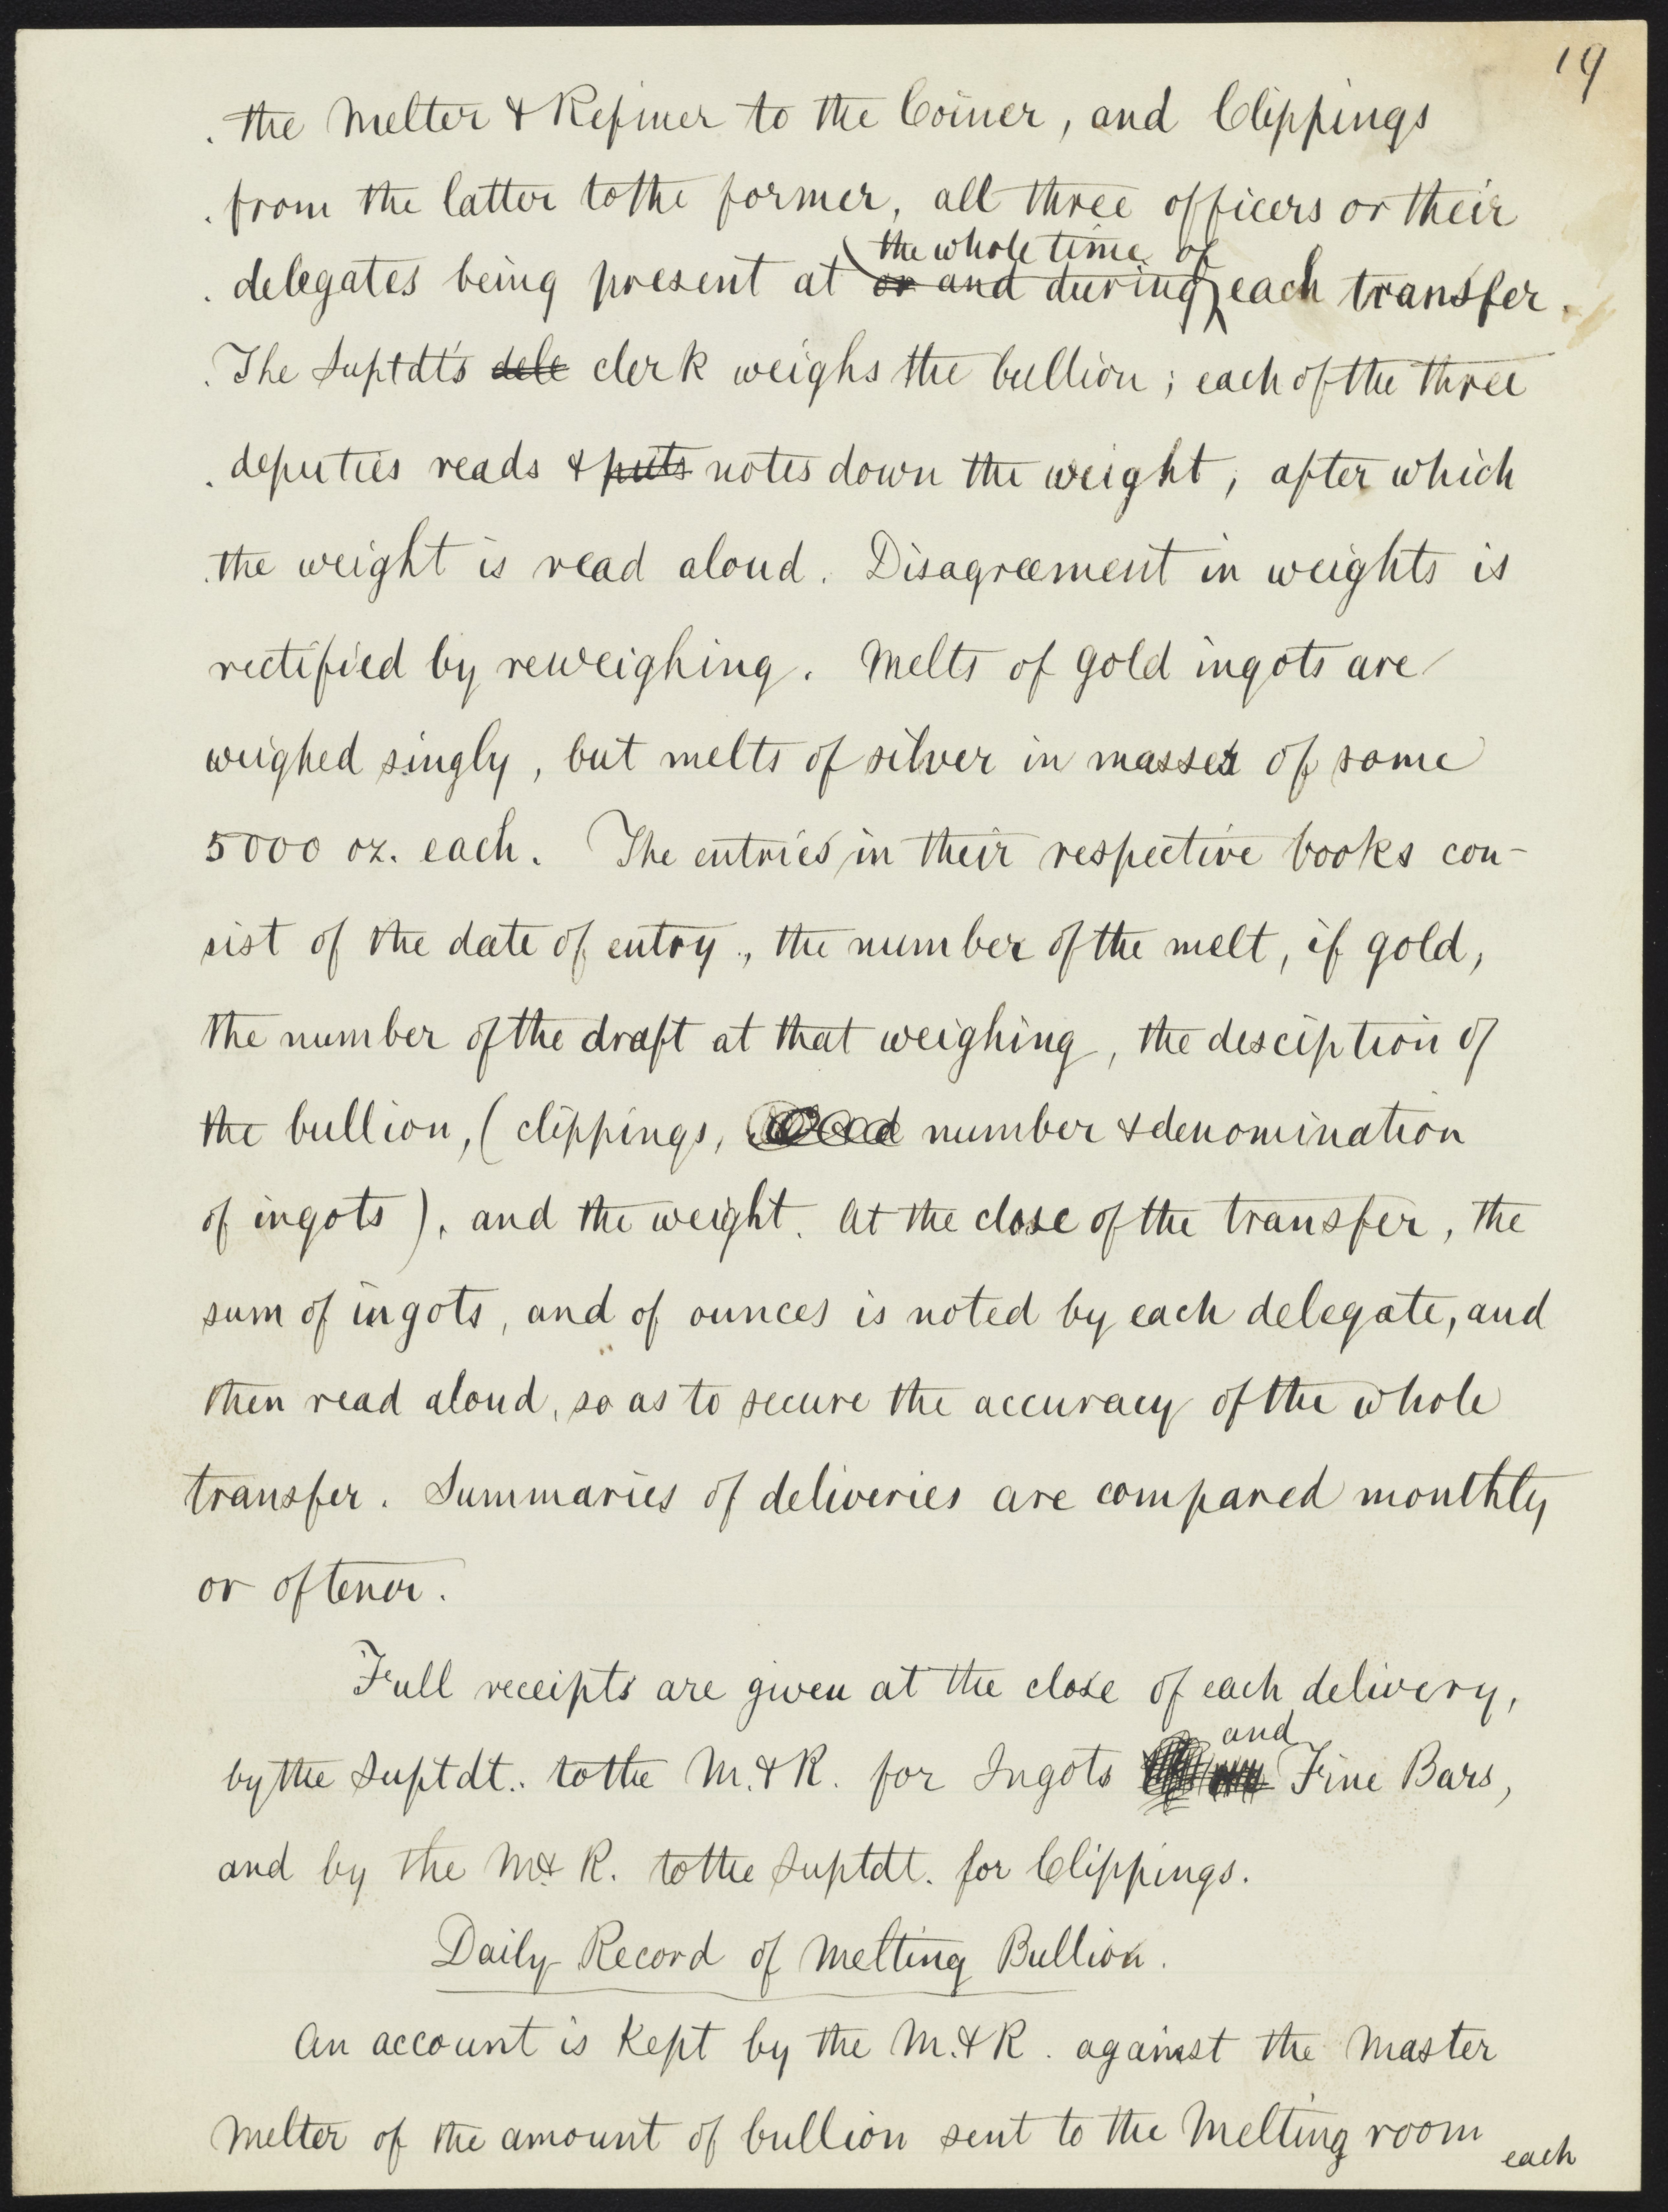 19
the Melter & Refiner to the Coiner, and Clippings
from the latter to the former, all three officers or their
the whole time of
delegates being present at or and during each transfer.
The Suptdt's dele clerk weighs the bullion; each of the three
deputies reads & puts notes down the weight, after which
the weight is read aloud. Disagreement in weights is
rectified by reweighing. Melts of gold ingots are
weighed singly, but melts of silver in masses of some
5000 oz. each. The entries in their respective books con-
sist of the date of entry, the number of the melt, if gold,
the number of the draft at that weighing, the desciption of
the bullion, (clippings, number & denomination
of ingots), and the weight. At the close of the transfer, the
sum of ingots, and of ounces is noted by each delegate, and
then read aloud, so as to secure the accuracy of the whole
transfer. Summaries of deliveries are compared monthly
or oftener.
Full receipts are given at the close of each delivery,
and
by the Suptdt. to the M. & R. for Ingots Fine Bars,
and by the M. & R. to the Suptdt. for Clippings.
Daily Record of Melting Bullion.
An account is kept by the M. & R. against the Master
Melter of the amount of bullion sent to the Melting room
each